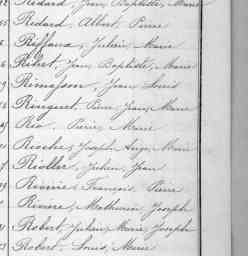 Redard, Jean Baptiste, Marie
Redard, Albert, Pierre
Riffaux, Julien, Marie
Robert, Jean Baptiste, Marie
Rimasson, Jean Louis
Pierre, Jean, Marie
Rio, Pierre, Marie
Rioche, Joseph, Ange, Marie
Riollet, Julien, Jean
François, Pierre
Riviere, Mathurin, Joseph
Robert, Julien, Marie, Joseph
Robert, Louis, Marie